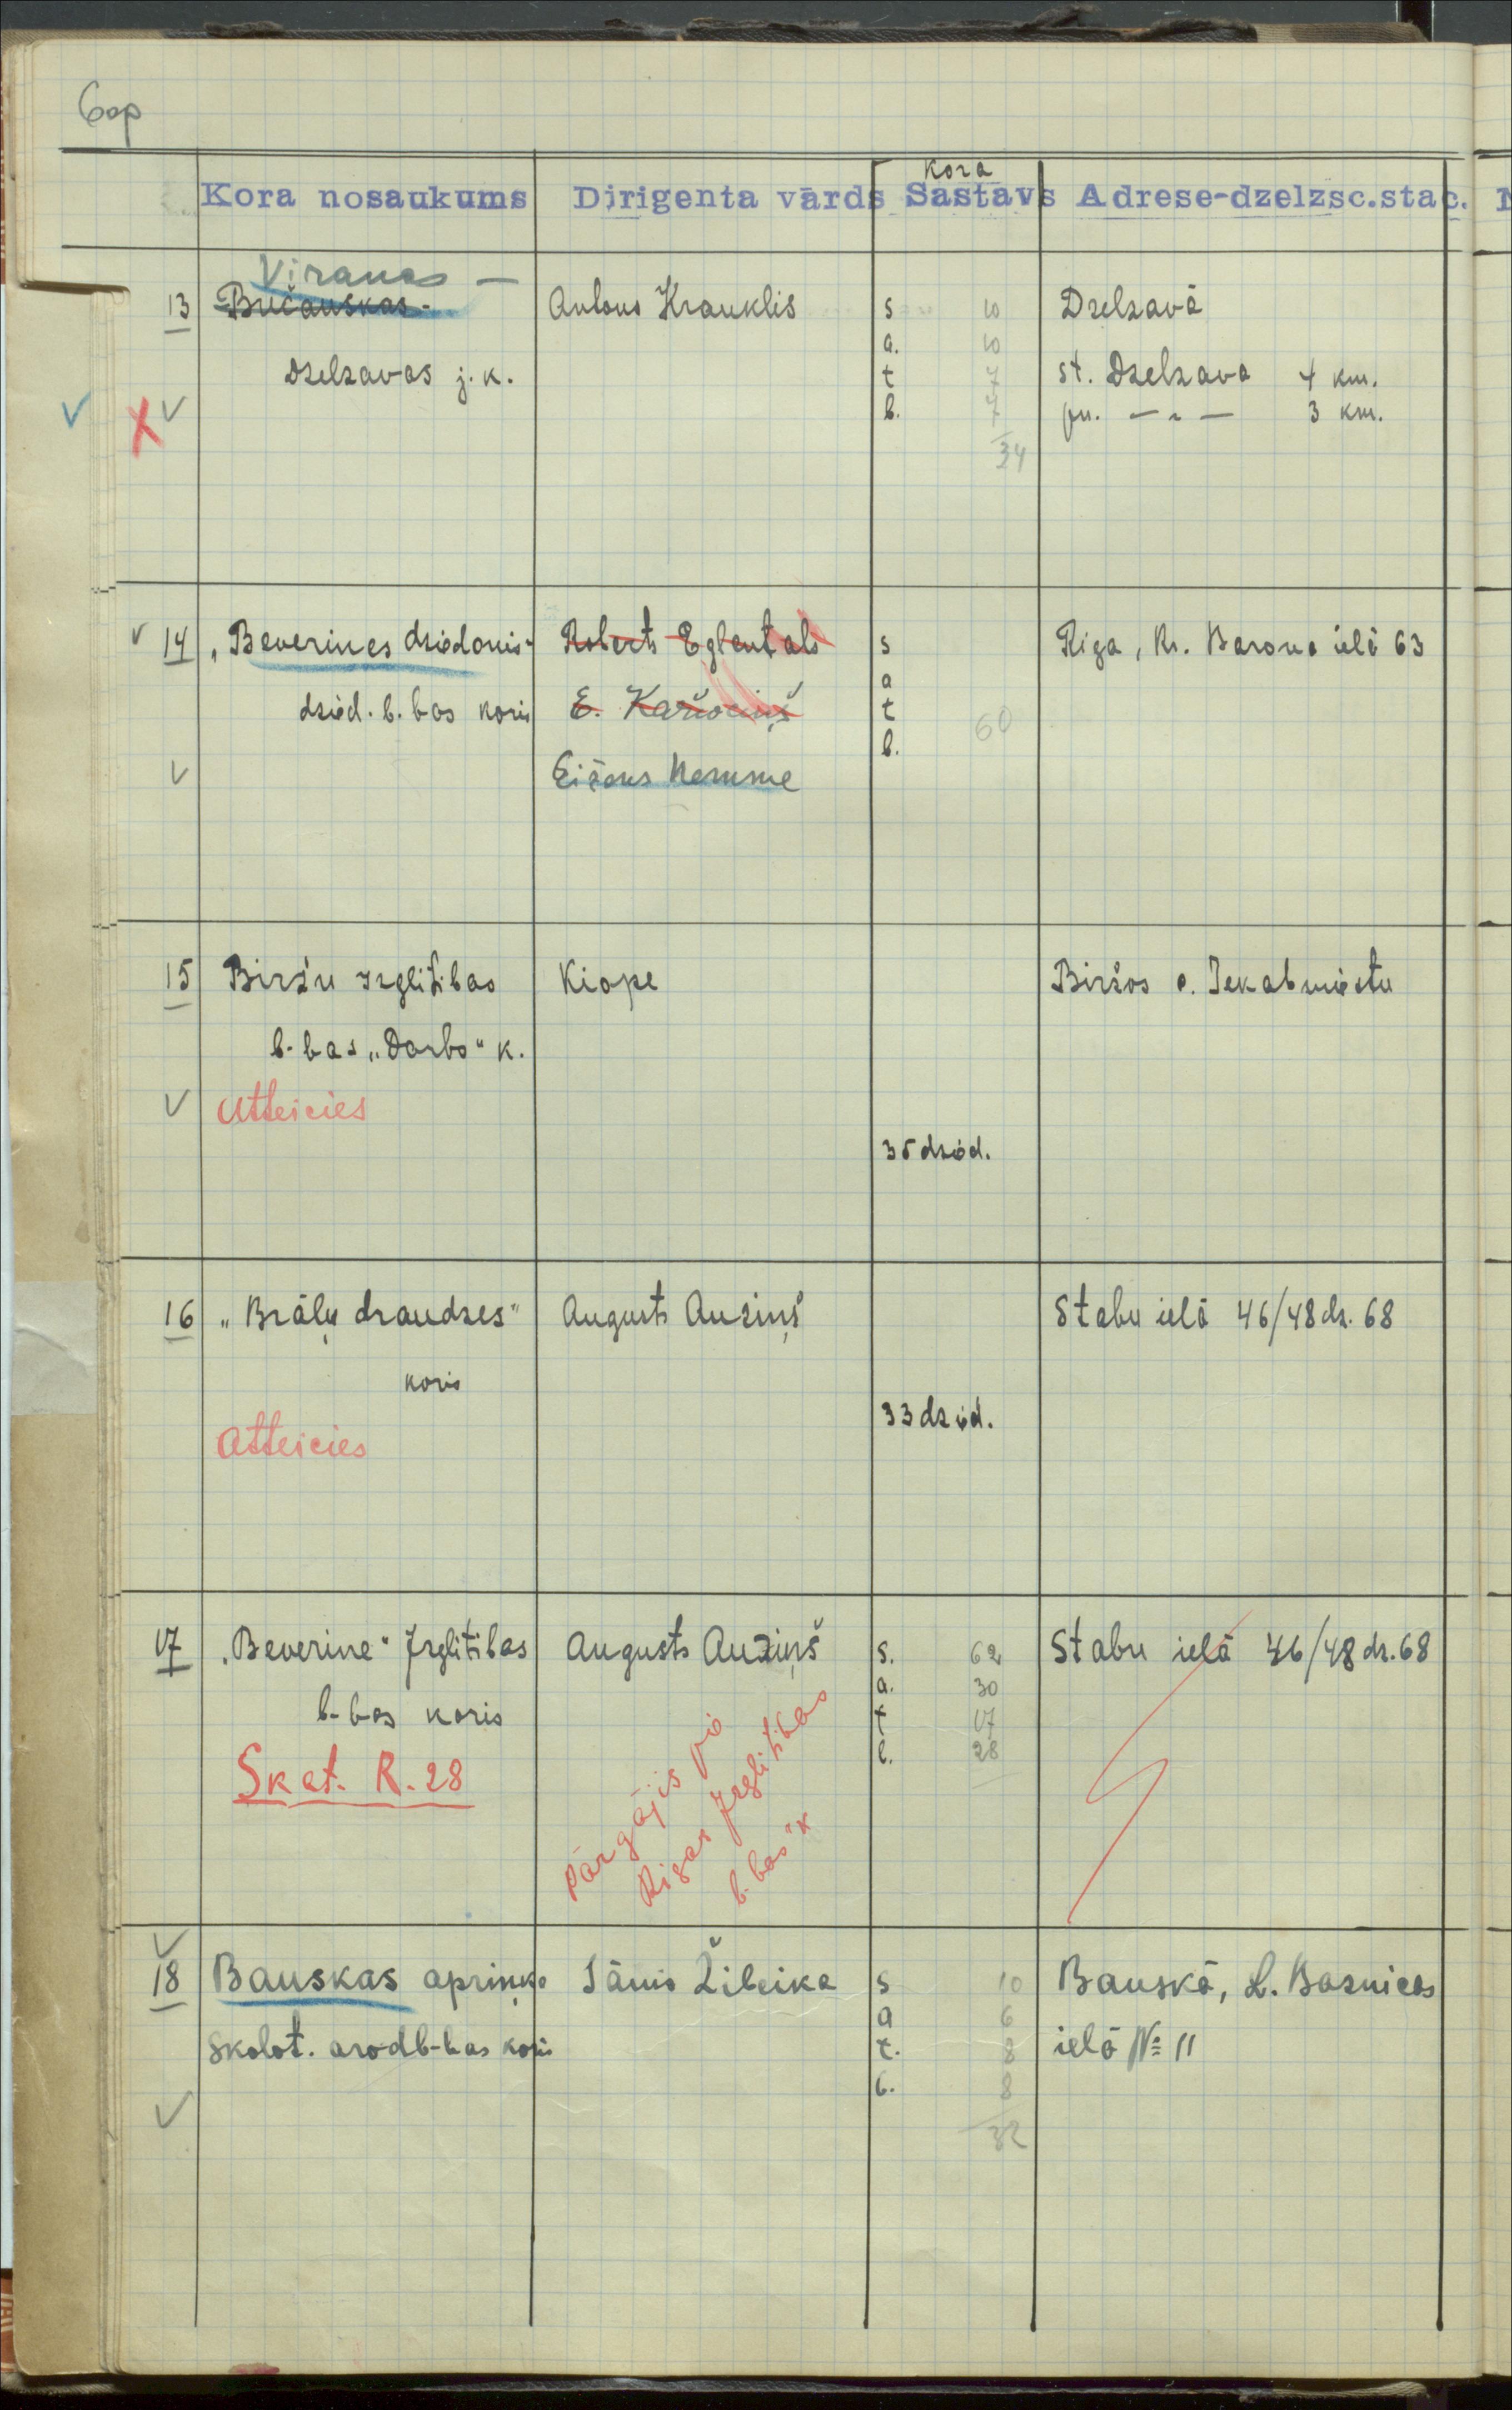 6op
Kora nosaukums Dirigenta vārds Kora Sastāvs Adrese-dzelzsc.stac.
Viranes -
13 -Bučauskas- Antons Krauklis s 10 Dzelzavā
a. 10
Dzelzavas j. k. t 7 st. Dzelzava 4 km.
V X V b. 7 pn. — „ — 3 km.
34
V 14 „Beverines dziedonis" Roberts Eglentals s Rīga, Kr. Barona ielā 63
a
dzied. b. bas koris E. Karlociņš t 60
b.
V Eižens Nemme
15 Biržu Izglītibas Kiope Biržos p. Jekabmiestu
b-bas „Darbs" k.
V Atteicies
35 dzied.
16 „Brāļu draudzes" Augusts Auziņš Stabu ielā 46/48 dz. 68
koris
33 dzied.
Atteicies
17 „Beverine" Izglitibas Augusts Auziņš s. 62 Stabu ielā 46/48 dz. 68
a. 30
b-bas koris t 17
b. 28
Skat. R. 28
Pārgājis pie
Rīgas Izglitibas
b-bas" k
V
18 Bauskas apriņķa Jānis Žibeika s 10 Bauskā, L. Baznicas
a 6
skolot. arodb-bas koris t. 8 ielā № 11
b. 8
V
32